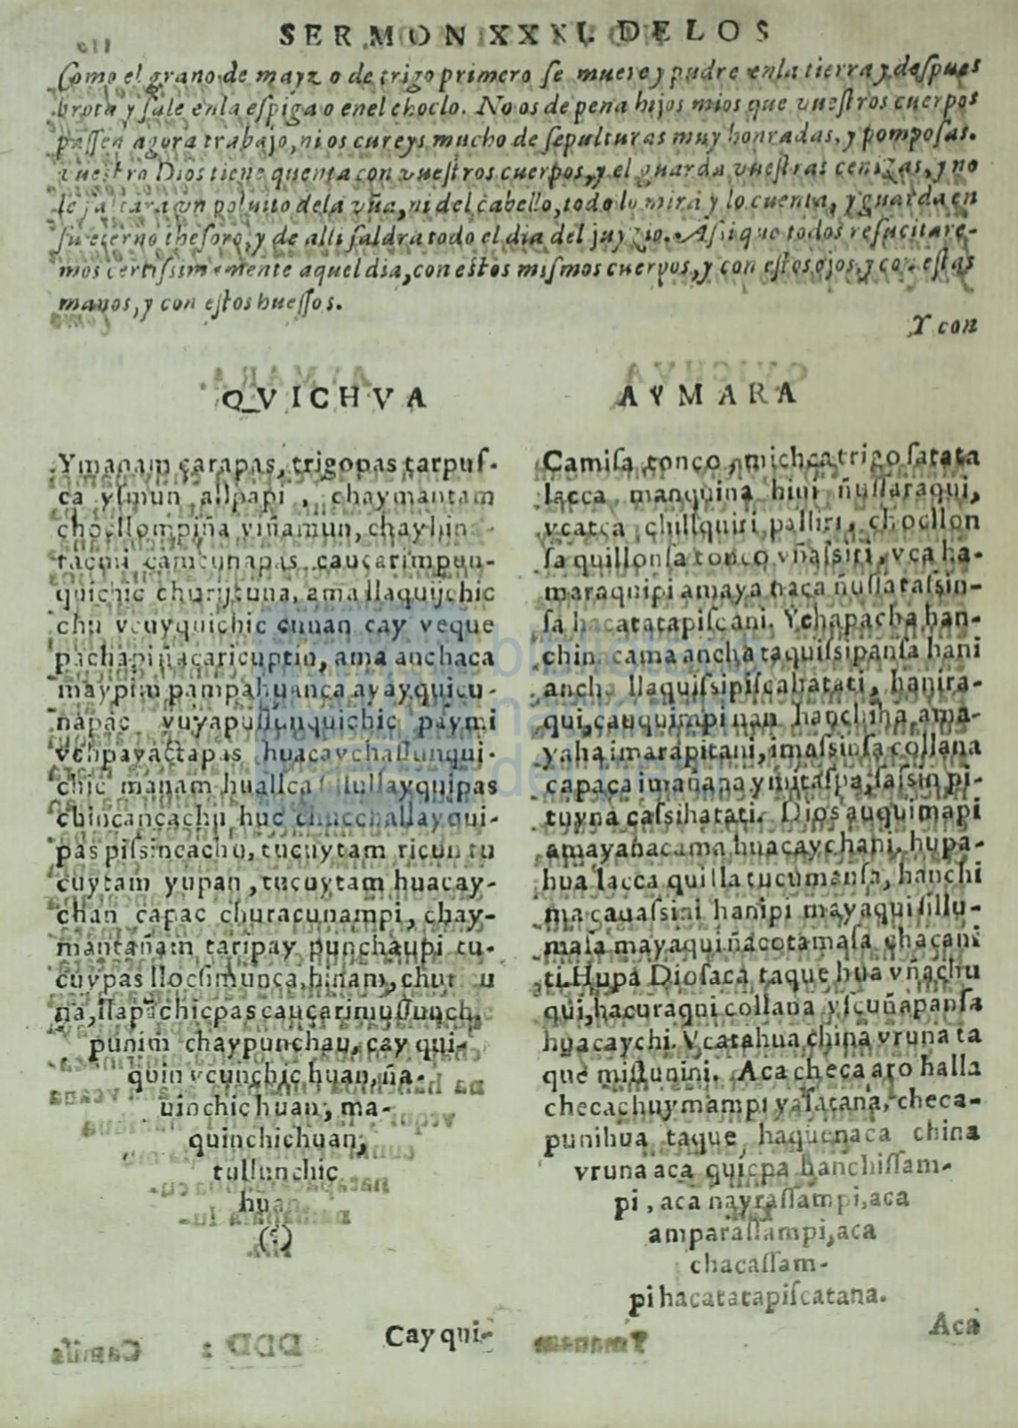 SERMON XXXI. DE LOS
Como el grano de mayz o de trigo primero ſe muere y pudre enla tierra y deſpues
brota y ſale enla eſpiga o enel choclo. No os de pena hijos mios que vueſtros cuerpos
paſſen agora trabajo, ni os cureys mucho de ſepulturas muy honradas, y pompoſas.
vueſtro Dios tiene quenta con vueſtros cuerpos, y el guarda vueſtras cenizas, y no
le faltara vn poluito dela vña, ni del cabello, todo lo mira y lo cuenta, y guarda en
ſu eterno theſoro, y de alli ſaldra todo el dia del juyzio. Aſsi que todos reſucitare-
mos certiſsimamente aquel dia, con eſtos miſmos cuerpos, y con eſtos ojos, y con eſtas
manos, y con eſtos hueſſos.
Y con
QVICHVA
Ymanam çarapas, trigopas tarpuſ-
ca yſmun allpapi, chaymantam
viñamun,
cauçarimpun-
quichic churijcuna, ama llaquijchic
chu vcuyquichic cunan cay veque
pachapi ñacaricuptin, ama anchaca
maypim pampahuanca ay ayquicu-
napac
huacaychaſſunqui-
chic manam huallca lullayquipas
chincancachu huc chucchallayqui-
pas piſsincachu, tucuytam ricun tu
cuytam yupan, tucuytam huacay-
chan capac churacunampi, chay-
mantañam taripay punchaupi tu-
cuypas llocſimunca, hinam,
cauçarimuſſunch,
punim chaypunchau, cay qui-
quin vcunchic huan, ña-
uinchic huan, ma-
quinchichuan,
tullunchic
huan
(?)
Cay qui-
AYMARA
Camiſa tonço, michca trigo ſatata
lacca manquina hiui ñuſſaraqui,
vcatca chillquiri palliri, chocllon
ſa quillonſa tonco vñaſsiri, vca ha-
maraquipi amaya naca ñuſſataſsin-
ſa hacatatapiſcani. Ychapacha han-
chin cama ancha taquiſsipanſa hani
ancha llaquiſsipiſcahatati, hanira-
qui, cauquimpi nan hanchiha, ama-
yaha imarapitani, imaſsinſa collana
capaca
tuyna caſsihatati. Dios auquimapi
amayanacama huacaychani. hupa-
hua lacca quilla tucumanſa, hanchi
ma cauaſsini hanipi mayaqui ſillu-
maſa mayaqui ñacotamaſa chacani
ti. Hupa Dioſaca taque hua vñachu
qui, hacuraqui collana yſcuñapanſa
huacaychi. Vcatahua china vruna ta
que miſtunini. Aca checa aro halla
checachuymampi yaſatana, checa-
punihua taque haquenaca china
vruna aca quicpa hanchiſſam-
pi, aca nayraſſampi, aca
amparaſſampi, aca
chacaſſam-
pi hacatatapiſcatana.
Aca